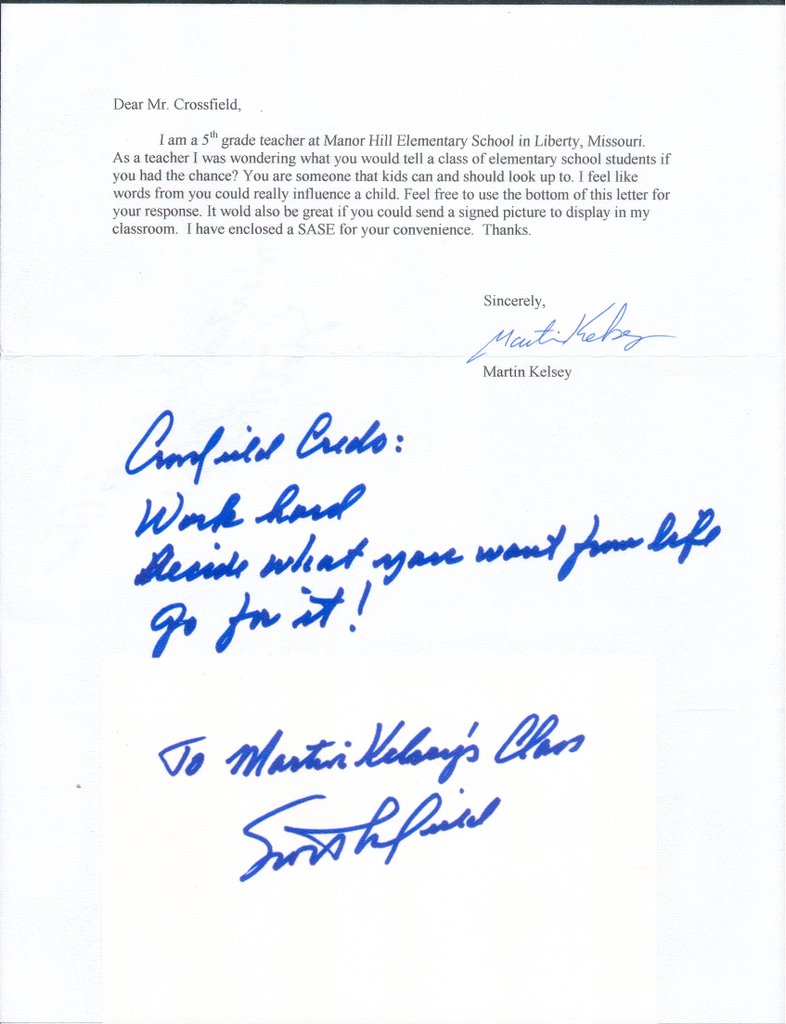 Dear Mr. Crossfield,
I am a 5th grade teacher at Manor Hill Elementary School in Liberty, Missouri.
As a teacher I was wondering what you would tell a class of elementary school students if
you had the chance? You are someone that kids can and should look up to. I feel like
words from you could really influence a child. Feel free to use the bottom of this letter for
your response. It wold also be great if you could send a signed picture to display in my
classroom. I have enclosed a SASE for your convenience. Thanks.
Sincerely,
Martin Kelsey
Martin Kelsey
Crossfield Credo:
Work hard
Decide what you want from life
Go for it!
To Martin Kelsey's Class
Scott Crossfield